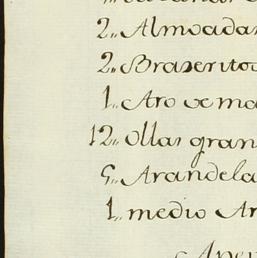 2,, Almoadas
2,, Braseritos
1,, Aro de ma
12,, ollas gran
5,, Arandela
1,, medio Ar